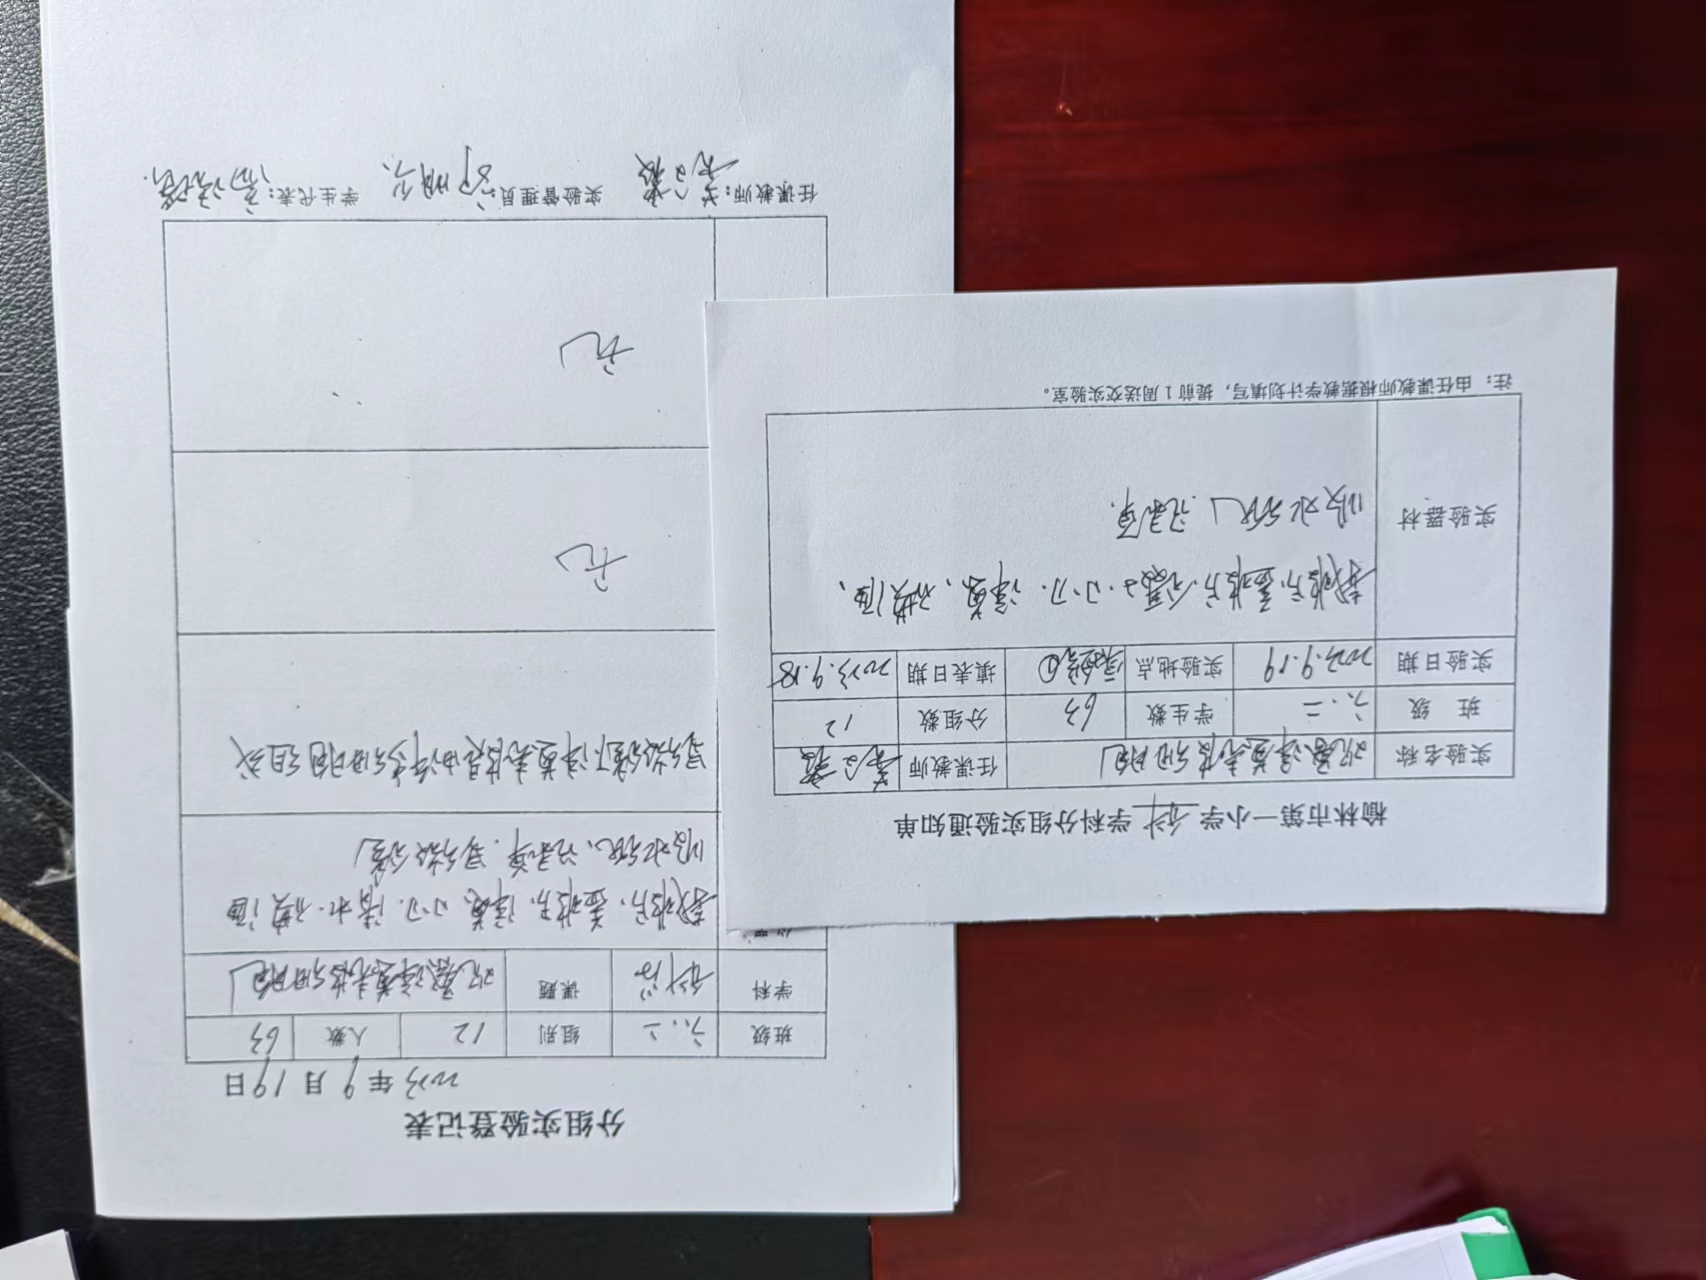 分组实验登记表
2023年9月19日
班级 六.二 组别 12 人数 63
学科 科学 课题 观察洋葱表皮细胞
载玻片、盖玻片、洋葱、小刀、清水、碘酒
吸水纸、记录单、显微镜
显微镜下洋葱表皮是由许多细胞组成
无
无
任课教师: 实验管理员: 学生代表:
榆林市第一小学 科学 学科分组实验通知单
实验名称 观察洋葱表皮细胞 任课教师
班 级 六.二 学生数 63 分组数 12
实验日期 2023.9.19 实验地点 实验室① 填表日期 2023.9.18
实验器材 载玻片、盖玻片、镊子、小刀、洋葱、碘酒、
吸水纸、记录单
注: 由任课教师根据教学计划填写，提前1周送交实验室。